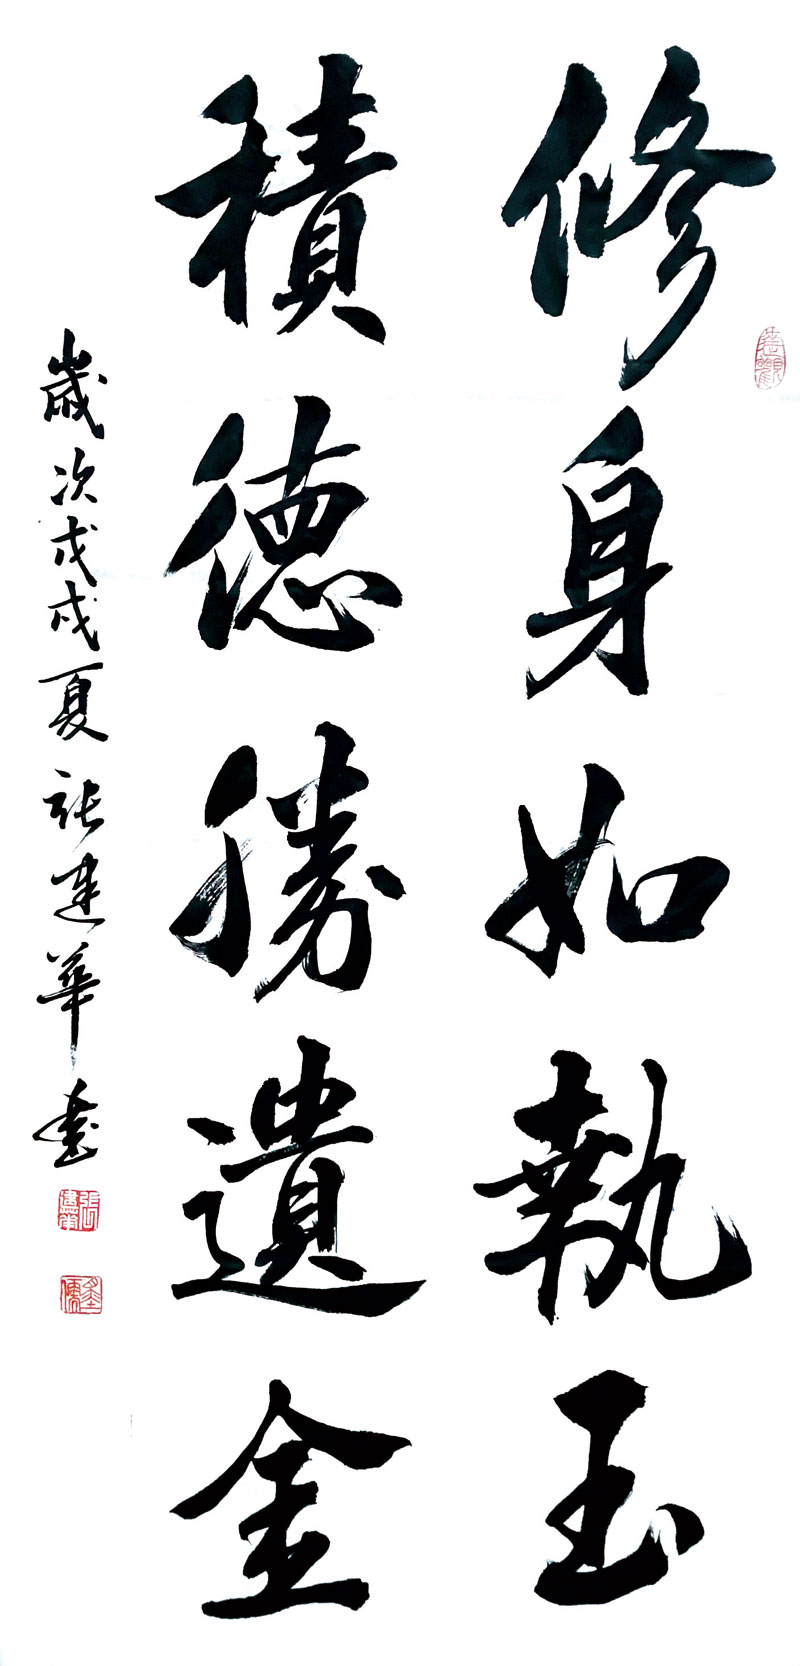 修身如執玉
積德勝遺金
歲次戊戌夏張建華書
張建華